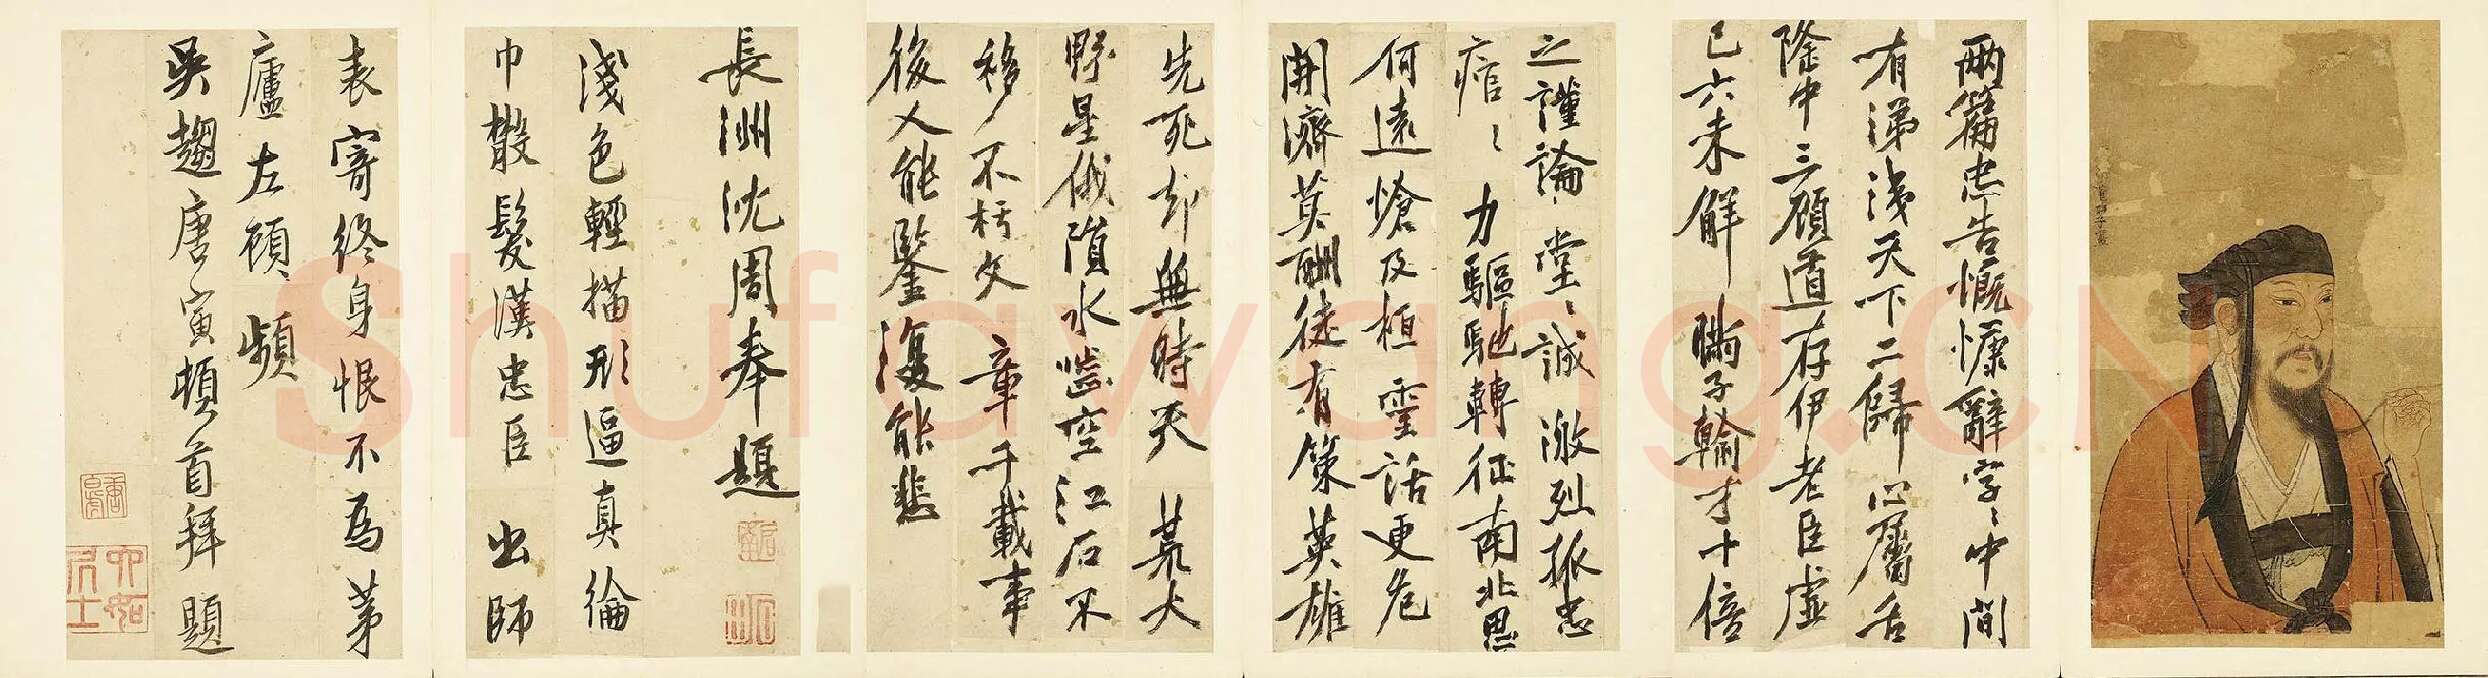 兩篇忠告慨慷辭字〻中間
有涕天下二歸心屬
隆中三顧道存伊老臣虛
已六未解瞞子輸才十倍
之謹論堂〻誠激烈孤忠
痯〻力驅馳轉征南北思
何遠愴及桓靈話更危
開濟莫酬徒有策英雄
先死却無時天荒大
野星俄隕水齧空江石不
移不朽文章千載事
後人能鑒復能悲
長洲沈周奉題
淺色輕描形逼真綸
巾散髮漢忠臣出師
表寄終身恨不為茅
廬左顧頻
吳趨唐寅頓首拜題
六如居士
Shufawang.CN